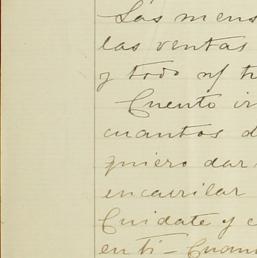 Las mens
las ventas
y todo s/ tr
Cuento ir
cuantos d
quiero dar
encarrilar
Cuidate y c
en ti - Cuan